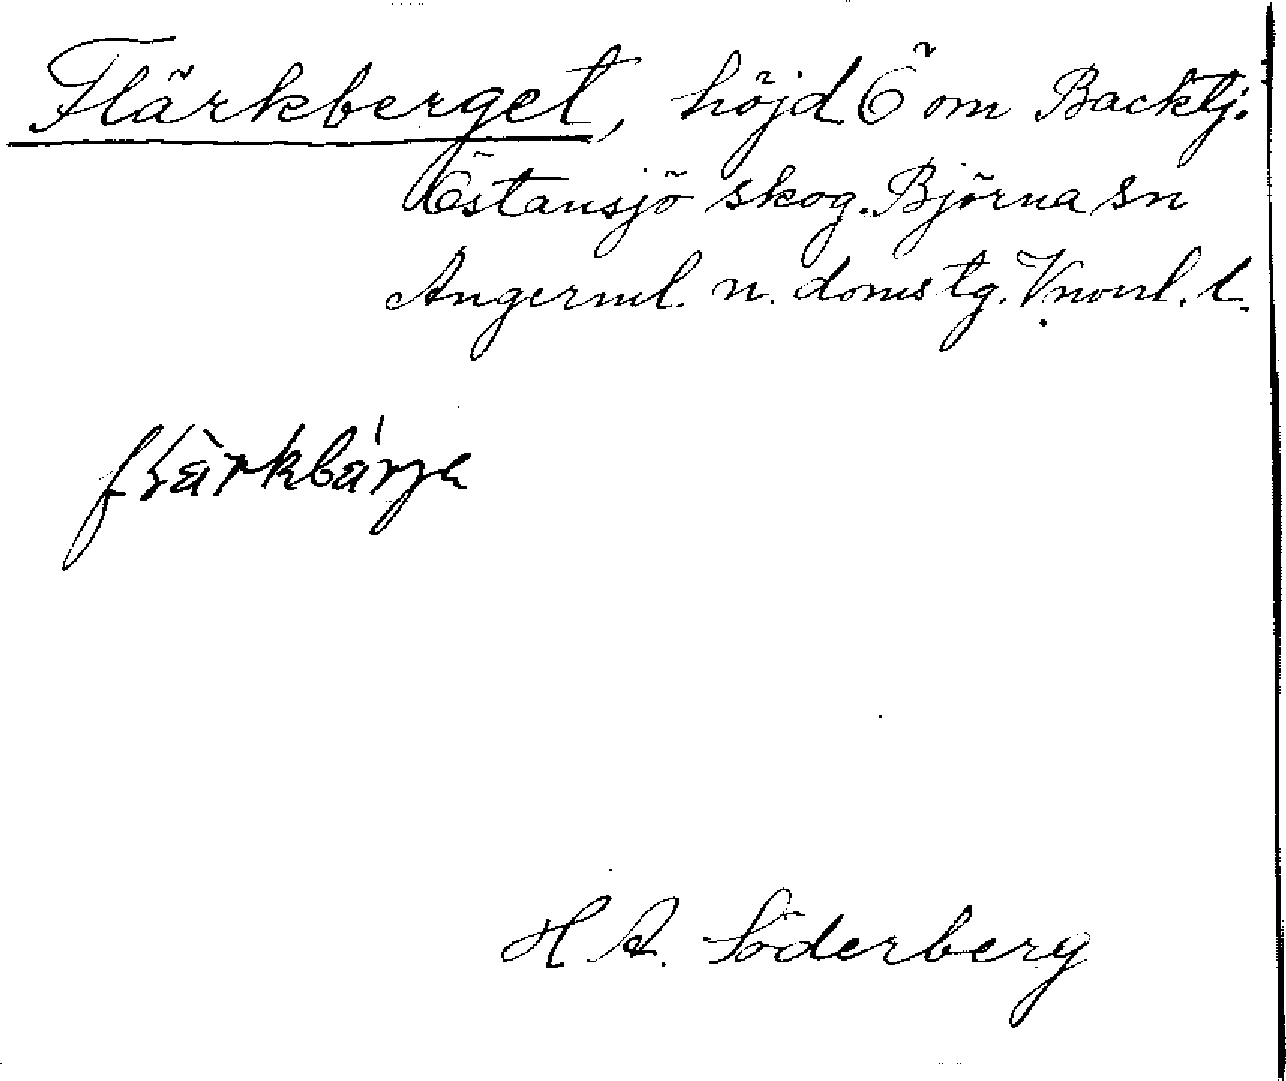 Flärkberget, höjd Ö om Backtj.
Östansjö skog. Björna sn
Ångerml. n. domstg. Vnorrl. l.
flärkbärje
H A. Söderberg